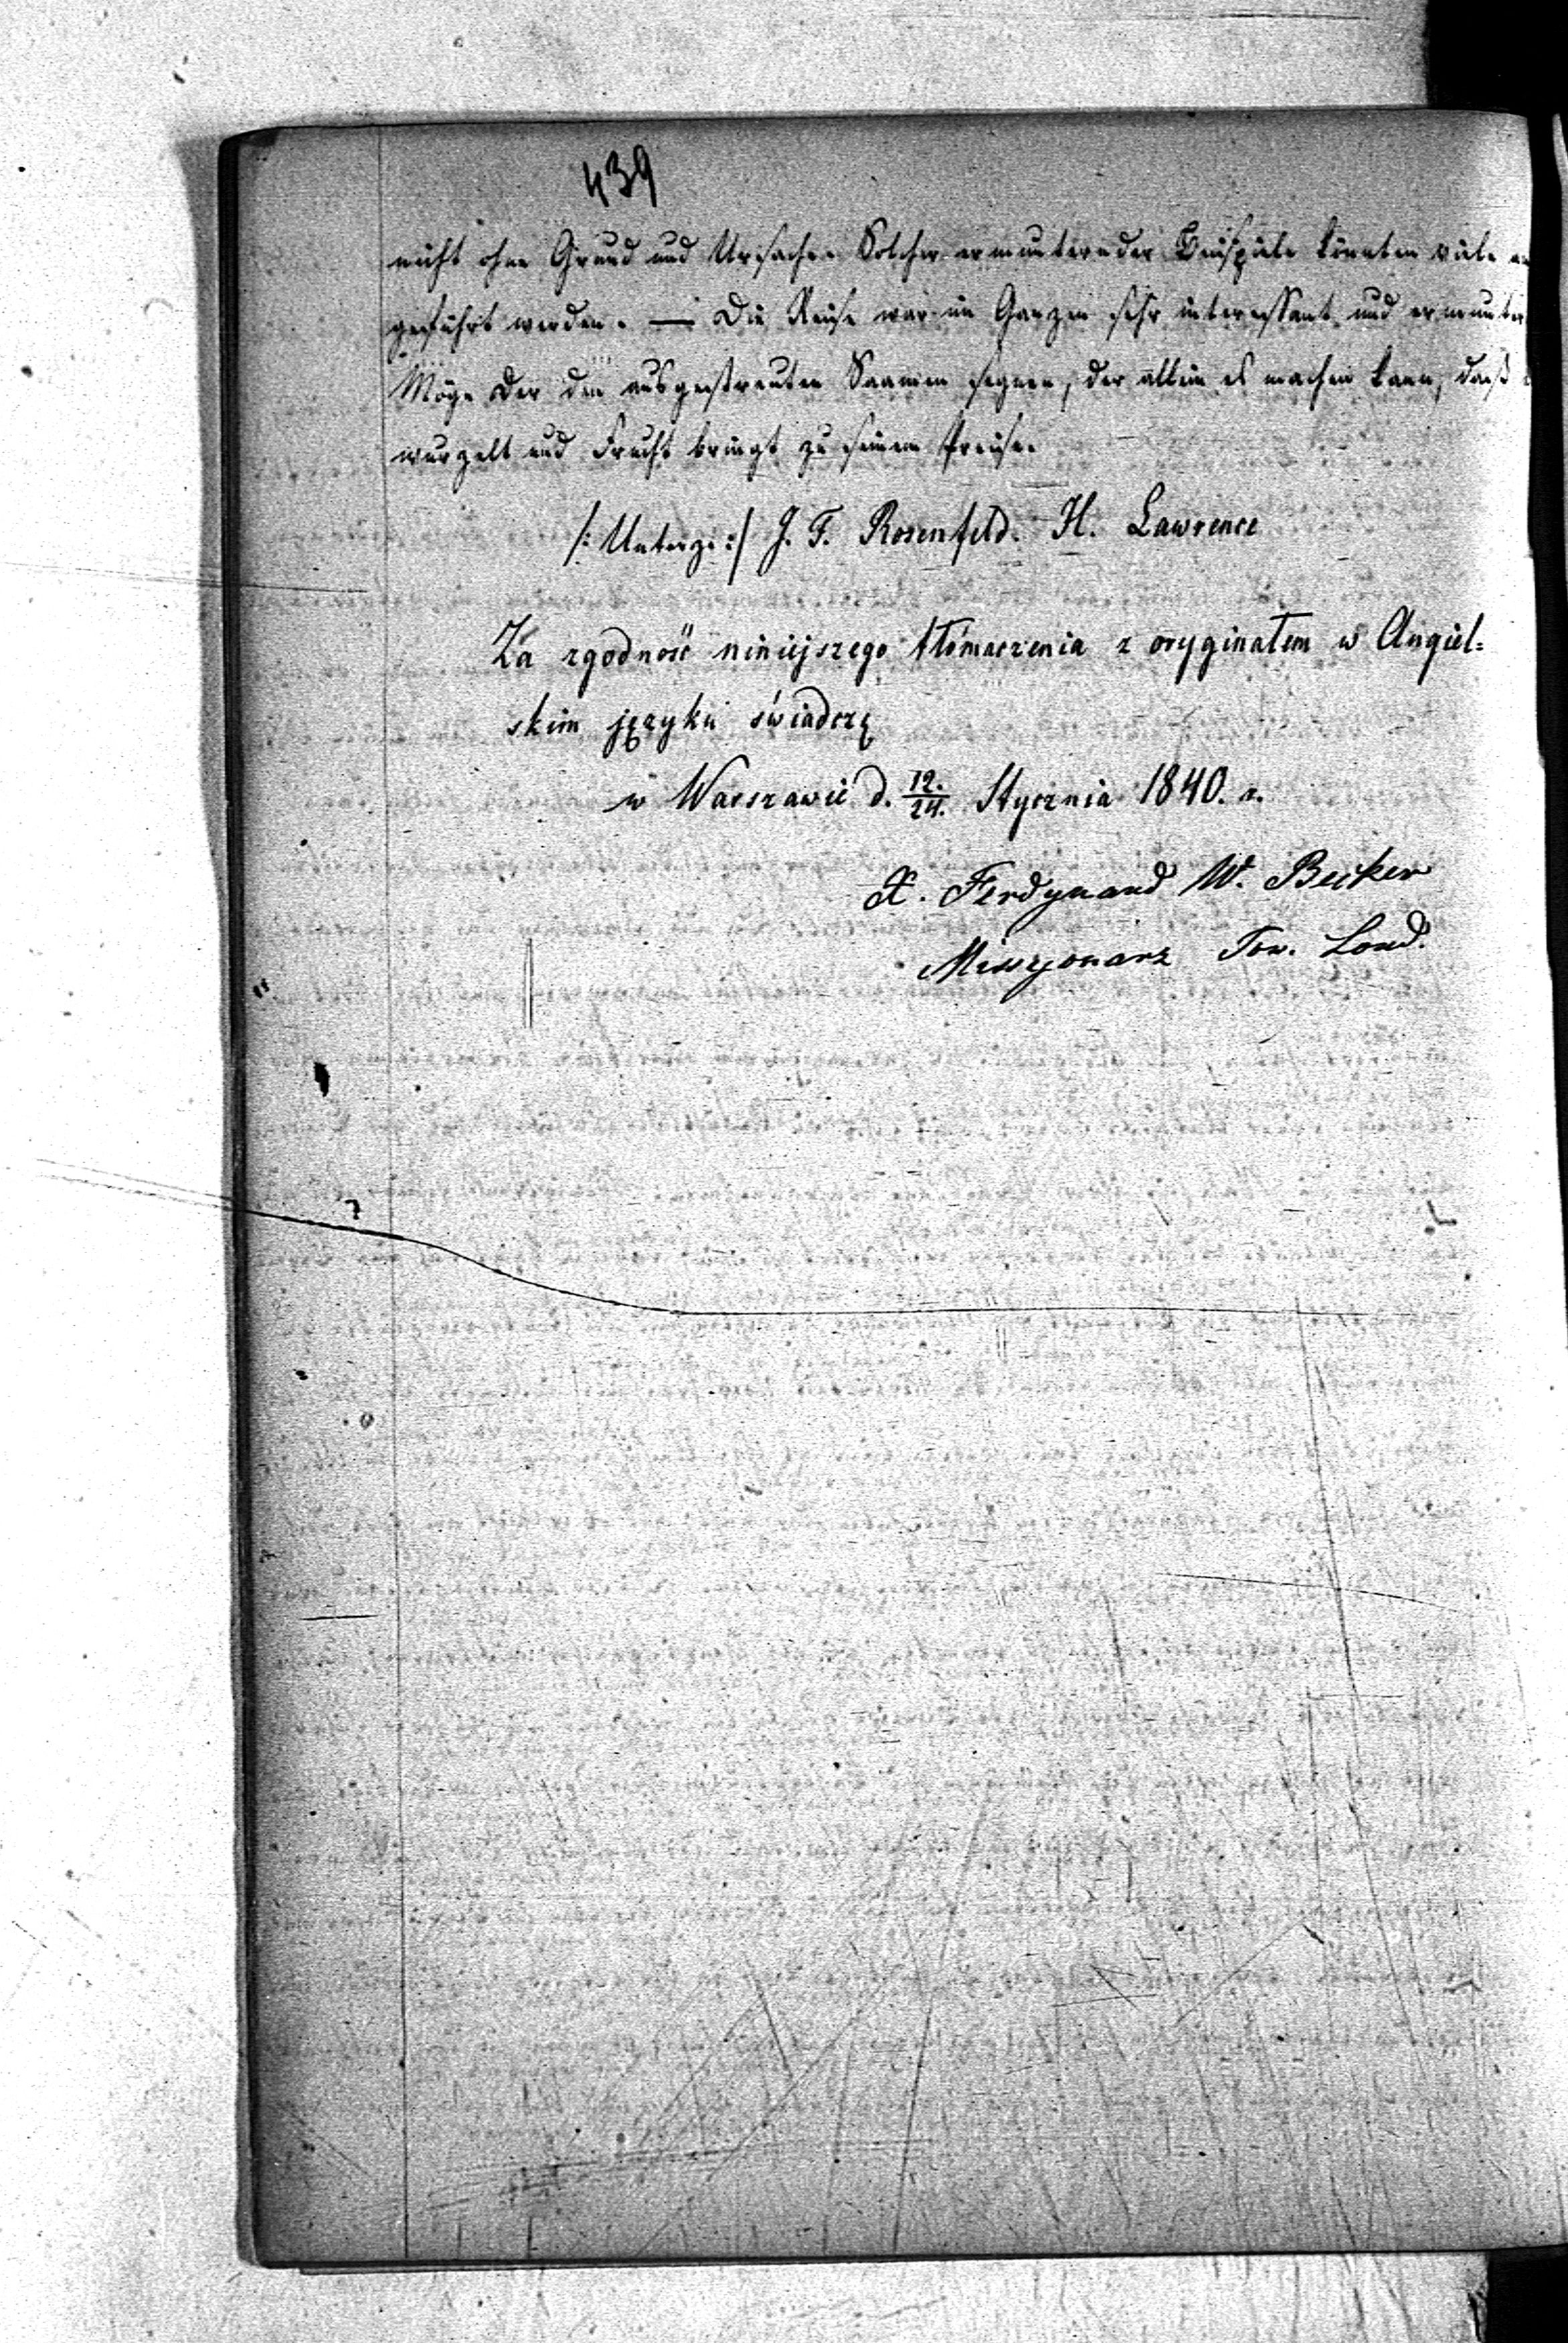 439
nicht ohne Grund und Ursache. Solcher ermunternder Beispiele könnten viele an
geführt werden. — Die Reise war im Ganzen sehr interessant und ermunter
Möge Der den ausgestreuten Saamen segnen, der allein es machen kann, daß
wurzelt und Frucht bringt zu seinem Preise.
/: Unterz: :/ J. F. Rosenfeld. H. Lawrence
Za zgodność niniejszego tłómaczenia z oryginałem w Angiel=
skim języku świadczę
w Warszawie d. 12./24. Stycznia 1840. r.
X. Ferdynand W. Becker
Missyonarz Tow. Lond.